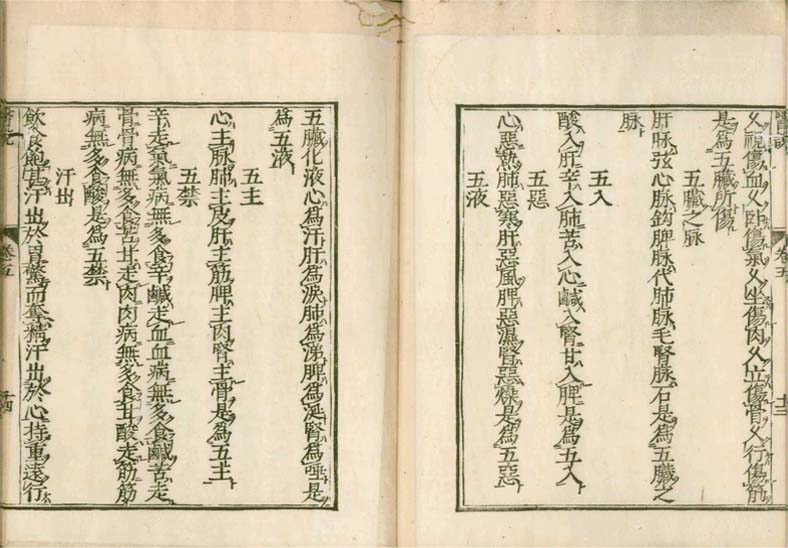 醫說 卷五 十三
久視傷血久卧傷氣久坐傷肉久立傷骨久行傷筋
是爲五臟所傷
五臟之脉
肝脉弦心脉鈎脾脉代肺脉毛腎脉石是爲五臟之
脉
五入
酸入肝辛入肺苦入心鹹入腎甘入脾是爲五入
五惡
心惡熱肺惡寒肝惡風脾惡濕腎惡燥是爲五惡
五液
五臟化液心爲汗肝爲淚肺爲涕脾爲涎腎爲唾是
爲五液
五主
心主脉肺主皮肝主筋脾主肉腎主骨是爲五主
五禁
辛走氣氣病無多食辛鹹走血血病無多食鹹苦走
骨骨病無多食苦甘走肉肉病無多食甘酸走筋筋
病無多食酸是爲五禁
汗出
飲食飽甚汗出於胃驚而奪精汗出於心持重遠行
醫說 卷五 十四